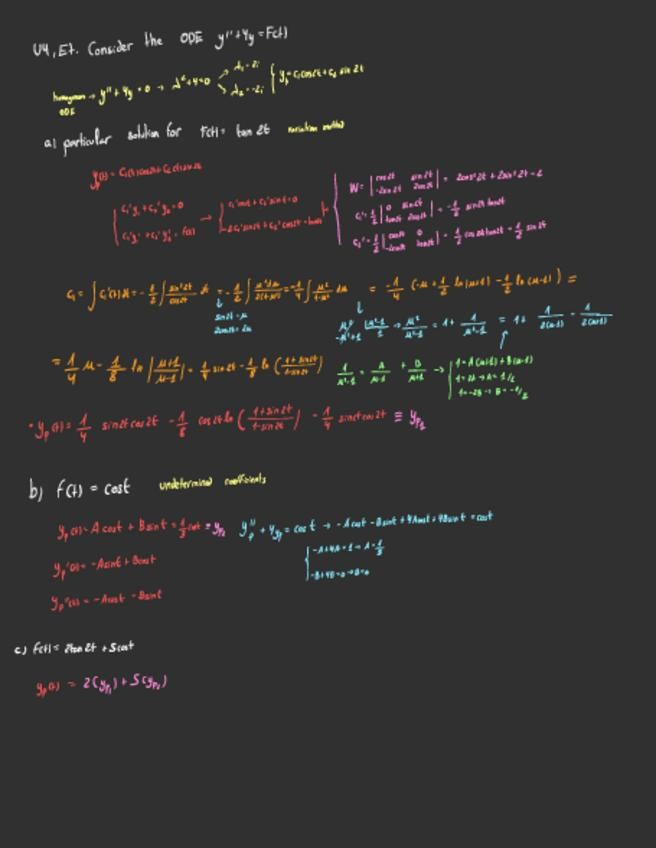 U4, E7. Consider the ODE y'' + 4y = F(t)
homogeneous ODE → y'' + 4y = 0 → λ² + 4 = 0 λ₁ = 2i λ₂ = -2i { y = c₁cos2t + c₂ sin 2t
a) particular solution for F(t) = tan 2t variation method
y(t) = C₁(t)cos2t + C₂(t)sin2t
{ c₁'y₁ + c₂'y₂ = 0
c₁'y₁' + c₂'y₂' = f(t)
W = | cos2t sin2t -2sin2t 2cos2t | = 2cos²2t + 2sin²2t = 2
c₁' = 1/2 | 0 sin2t tan2t 2cos2t | = -1/2 sin2t tan2t
c₂' = 1/2 | cos2t 0 -2sin2t tan2t | = 1/2 cos2t tan2t = 1/2 sin 2t
C₁ = ∫ C₁'(t)dt = -1/2 ∫ sin²2t/cos2t dt = -1/2 ∫ = -1/4 ∫ μ²/1-μ² dμ = -1/4 (-μ + 1/2 ln(μ+1) - 1/2 ln(μ-1)) =
sin2t = μ
2cos2t = dμ
μ²/μ²-1 = 1 + 1/μ²-1 = 1 + 1/2(μ-1) - 1/2(μ+1)
= 1/4 μ - 1/8 ln |μ+1/μ-1| = 1/4 sin2t - 1/8 ln (1+sin2t/1-sin2t)
1/μ²-1 = A/μ-1 + B/μ+1 → { 1 = A(μ+1) + B(μ-1)
1 = 2A → A = 1/2
1 = -2B → B = -1/2
• yp(t) = 1/4 sin2t cos2t - 1/8 cos2t ln (1+sin2t/1-sin2t) - 1/4 sin2t cos2t ≡ yp₁
b) f(t) = cost undetermined coefficients
yp(t) = A cost + B sint = 1/3 cost = yp₂ yp'' + 4yp = cos t → -A cost - B sint + 4A cost + 4B sint = cost
{ -A + 4A = 1 → A = 1/3
-B + 4B = 0 → B = 0
yp'(t) = -A sint + B cost
yp''(t) = -A cost - B sint
c) f(t) = 2tan 2t + 5cost
yp(t) = 2(yp₁) + 5(yp₂)